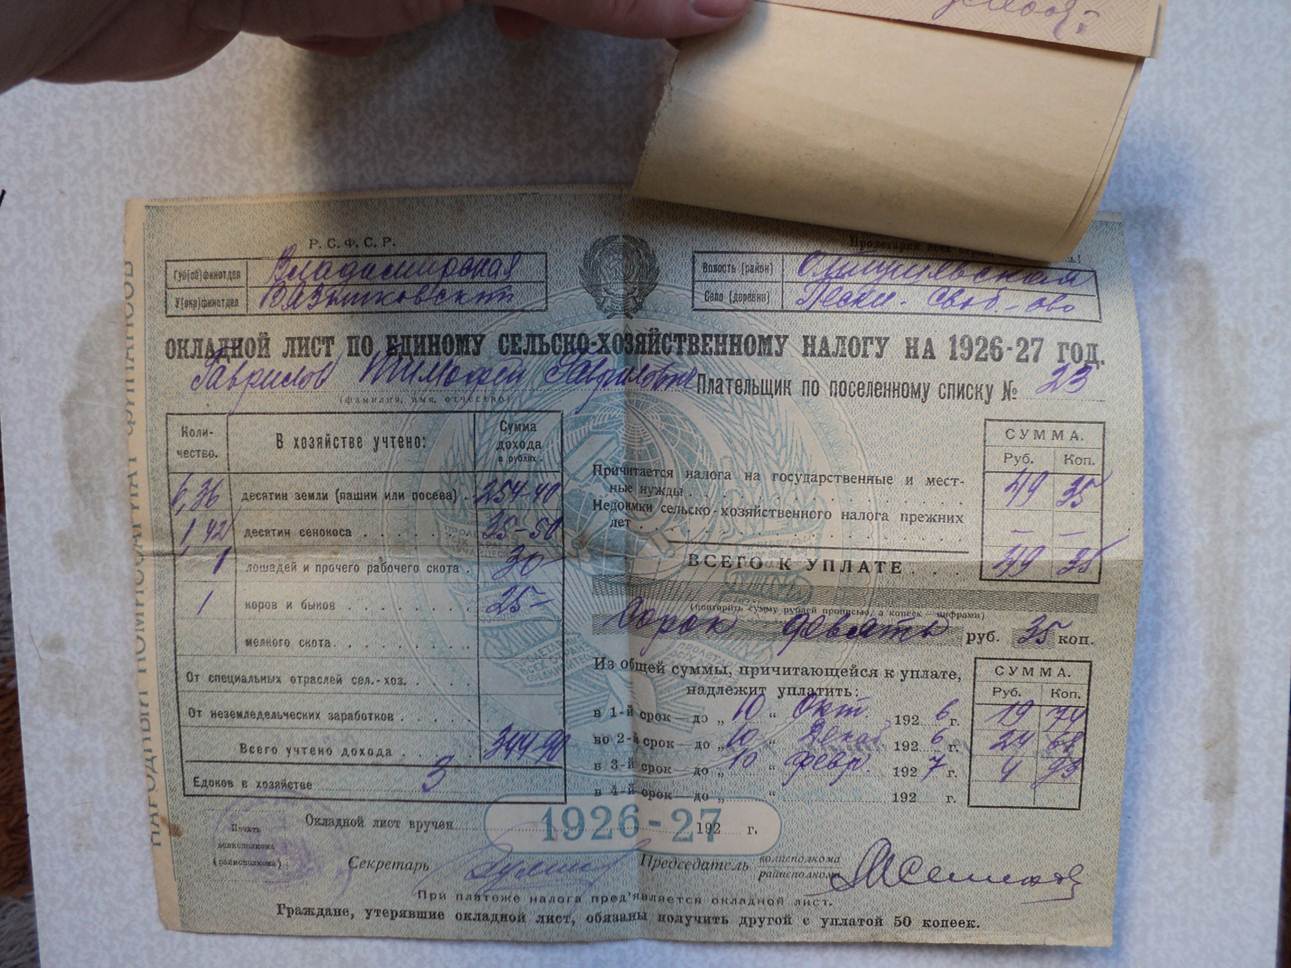 Р. С. Ф. С. Р.
Пролетарии всех
Губ(об)финотдел Владимирская
У(окр)финотдел Вязниковский
Волость (район)
Село (деревня) Пески
ОКЛАДНОЙ ЛИСТ ПО ЕДИНОМУ СЕЛЬСКО-ХОЗЯЙСТВЕННОМУ НАЛОГУ НА 1926-27 ГОД.
Гаврилов Тимофей Гаврилович
(фамилия, имя, отчество)
Плательщик по поселенному списку № 23
Коли-
чество.
В хозяйстве учтено:
Сумма
дохода
в рублях.
6,36 десятин земли (пашни или посева) . 254-40
1,42 десятин сенокоса . . . . . . . 35-50
1 лошадей и прочего рабочего скота . 30
1 коров и быков . . . . . . . . . 25-
мелкого скота . . . . . . . . .
От специальных отраслей сел.-хоз. . . .
От неземледельческих заработков . . . . .
Всего учтено дохода . . . . 344-90
Едоков в хозяйстве 3
СУММА.
Руб. Коп.
Причитается налога на государственные и мест-
ные нужды . . . . . . . . . 49 35
Недоимки сельско-хозяйственного налога прежних
лет . . . . . . . . . . . — —
ВСЕГО К УПЛАТЕ . . . . 49 35
(повторить сумму рублей прописью, а копеек — цифрами)
Сорок девять руб. 35 коп.
Из общей суммы, причитающейся к уплате,
надлежит уплатить:
СУММА.
Руб. Коп.
в 1-й срок — до „ 10 “ Окт. 192 6 г. 19 74
во 2-й срок — до „ 10 “ Декаб. 192 6 г. 24 68
в 3-й срок — до „ 10 “ февр. 192 7 г. 4 93
в 4-й срок — до „ “ 192 г.
Окладной лист вручен 192 г.
1926-27
Печать
волисполкома
(райисполкома)
Секретарь
Председатель волисполкома
райисполкома
При платеже налога пред'является окладной лист.
Граждане, утерявшие окладной лист, обязаны получить другой с уплатой 50 копеек.
НАРОДНЫЙ КОМИССАРИАТ ФИНАНСОВ